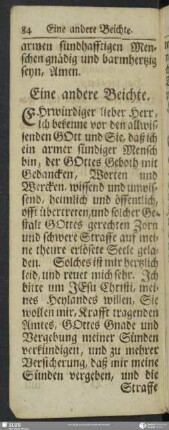 84 Eine andere Beichte.
armen sündhafftigen Men-
schen gnädig und barmhertzig
seyn, Amen.
Eine andere Beichte.
EHrwürdiger lieber Herr,
ich bekenne vor den allwis-
senden GOtt und Sie, daß ich
ein armer sündiger Mensch
bin, der GOttes Geboth mit
Gedancken, Worten und
Wercken, wissend und unwis-
send, heimlich und öffentlich,
offt übertreten, und solcher Ge-
stalt GOttes gerechten Zorn
und schwere Straffe auf mei-
ne theure erlösete Seele gela-
den. Solches ist mir hertzlich
leid, und reuet mich sehr. Ich
bitte um JEsu Christi, mei-
nes Heylandes willen, Sie
wollen mir, Krafft tragenden
Amtes, GOttes Gnade und
Vergebung meiner Sünden
verkündigen, und zu mehrer
Versicherung, daß mir meine
Sünden vergeben, und die
Straffe